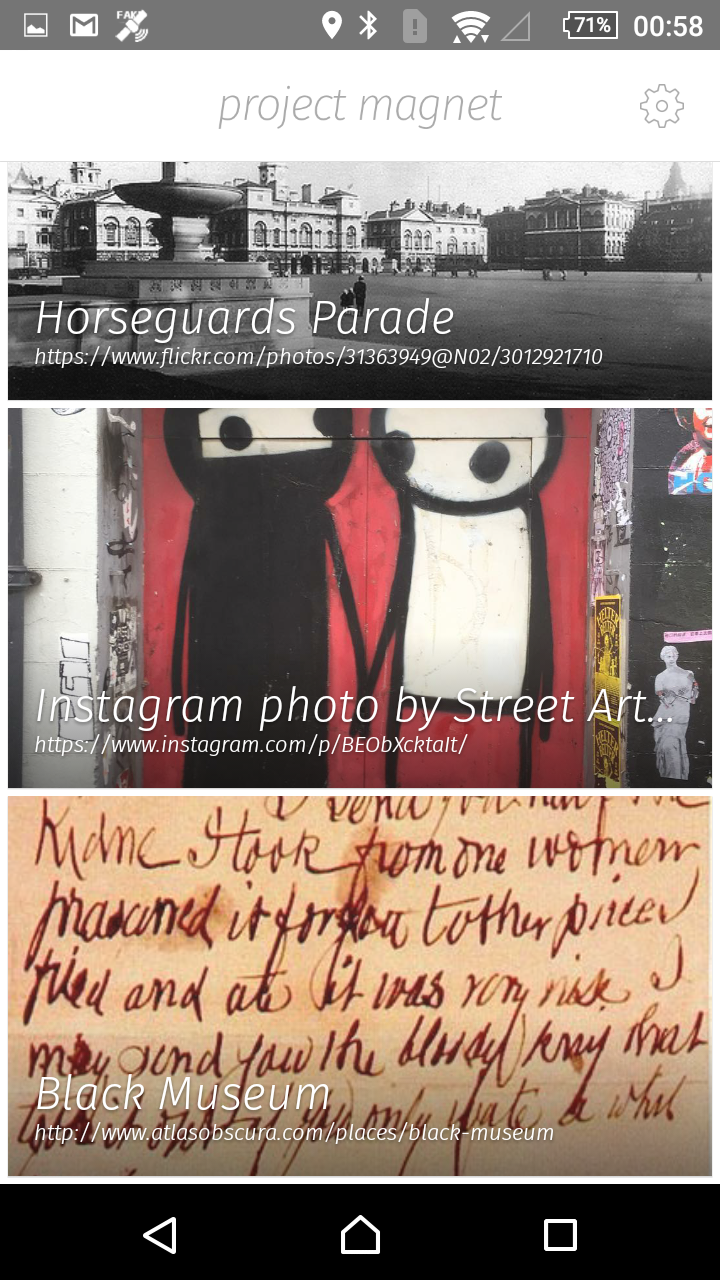 FAKE
71%
00:58
project magnet
Horseguards Parade
https://www.flickr.com/photos/31363949@N02/3012921710
Instagram photo by Street Art...
https://www.instagram.com/p/BEObXcktaIt/
Kidne I took from one women
prasarved it for you tother piece
fried and ate it was very nise I
may send you the bloody knif that
Black Museum
http://www.atlasobscura.com/places/black-museum